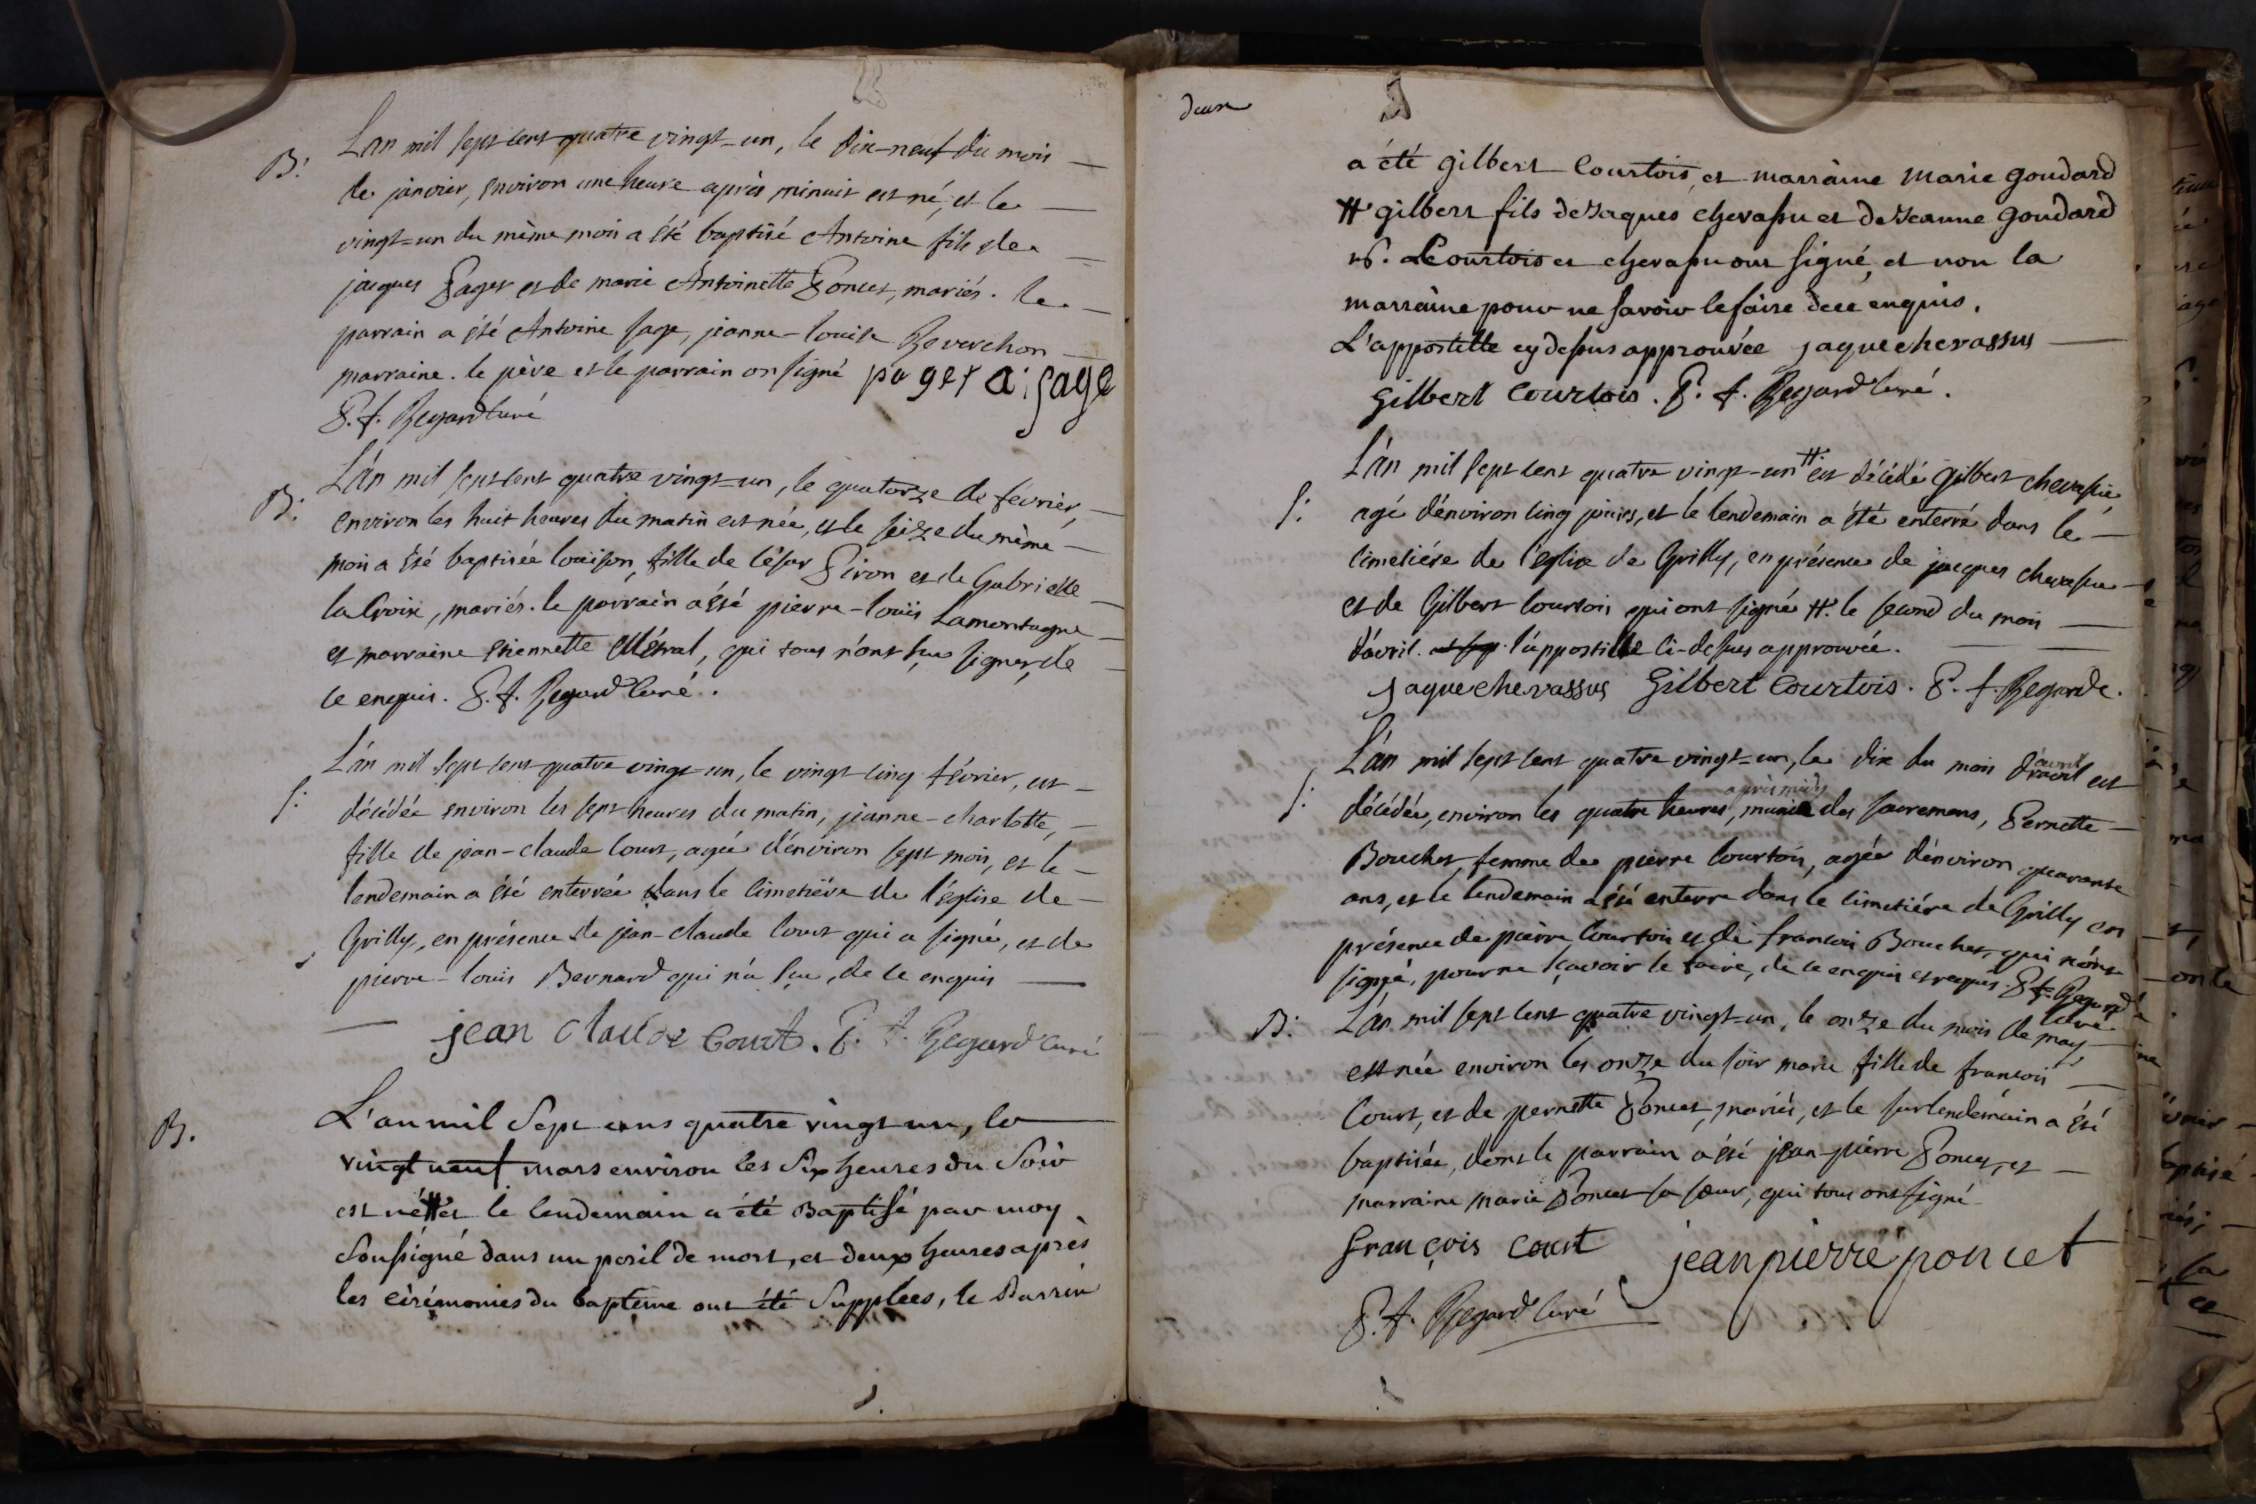 B: L'an mil sept cent quatre vingt-un, le dix-neuf du mois
de janvier, environ une heure après minuit est né, et le
vingt-un du même mois a été baptisé Antoine fils de
jacques Paget et de marie Antoinette Poncet, mariés. le
parrain a été Antoine sage, jeanne-louise Reverchon
marraine. le père et le parrain on signé paget a: sage
P. f. Regard curé
B: L'an mil sept cent quatre vingt-un, le quatorze de février,
environ les huit heures du matin est née, et le seize du même
mois a été baptisée louison, fille de César Piron et de Gabrielle
la Croix, mariés. le parrain a été pierre-louis Lamontagne
et marraine etiennette Mérat, qui tous n'ont sçu signer, de
ce enquis. P. f. Regard curé.
S: L'an mil sept cent quatre vingt un, le vingt cinq février, est
décédée environ les sept heures du matin, jeanne-charlotte,
fille de jean-claude Court, agée d'environ sept mois, et le
lendemain a été enterrée dans le cimetière de l'église de
Grilly, en présence de jean-claude Court qui a signé, et de
pierre-louis Bernard qui n'a sçu, de ce enquis
jean claude Court. P. f. Regard curé
B. L'an mil sept cens quatre vingt un, le
vingt neuf mars environ les six heures du soir
est né # et le lendemain a été Baptisé par moy
soussigné dans un peril de mort, et deux heures après
les cérémonies du baptême ont été supplées, le Parrin
deux
a été gilbert Courtois, et marraine marie goudard
# gilbert fils de Jaques chevassu et de Jeanne goudard
Courtois et chevassu ont signé, et non la
marraine pour ne savoir le faire de ce enquis.
L'appostille cy dessus approuvée jaque chevassus
gilbert Courtois. P. f. Regard curé.
S: L'an mil sept cent quatre vingt-un # est décédé gilbert chevassu,
agé d'environ cinq jours, et le lendemain a été enterré dans le
cimetière de l'église de Grilly, en présence de jacques chevassu
et de Gilbert Courtois qui ont signé #. le second du mois
d'avril. l'appostille ci-dessus approuvée.
jaque chevassus Gilbert Courtois. P. f. Regard c.
S: L'an mil sept cent quatre vingt-un, le dix du mois d'avril est
décédée, environ les quatre heures après midy, munie des sacremens, Pernette
Bouchet, femme de pierre Courtois, agée d'environ quarante
ans, et le lendemain a été enterre dans le cimetière de Grilly en
présence de pierre Courtois et de francois Bouchet, qui n'ont
signé, pour ne sçavoir le faire, de ce enquis et requis. P. f. Regard
curé
B: L'an mil sept cent quatre vingt-un, le onze du mois de may,
est née environ les onze du soir marie fille de francois
Court, et de pernette Poncet, mariés, et le surlendemain a été
baptisée, dont le parrain a été jean-pierre Poncet, et
marraine marie Poncet sa sœur, qui tous ont signé
françois court jean pierre poncet
P. f. Regard curé